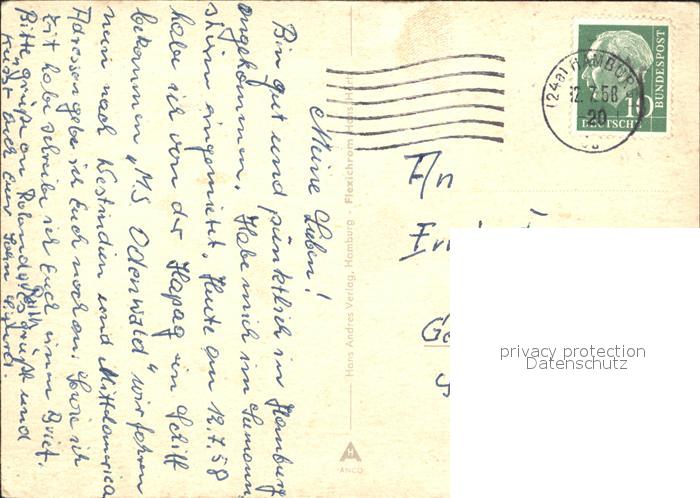 Meine Lieben!
Bin gut und pünktlich in Hamburg
angekommen. Habe mich im Seemann
sheim eingemietet. Heute am 12.7.58
habe ich von der Hapag ein Schiff
bekommen „M.S. Odenwald" wir fahren
nun nach Westindien und Mittelamerica
Adressen gebe ich Euch noch an. Sowie ich
Zeit habe schreibe ich Euch einen Brief.
Bitte grüße an Roland
es grüßt und
küßt Euch Euer Sohn
Hans Andres Verlag, Hamburg - Flexichrom
ANCO
(24a) HAMBURG
12.7.58
20
10
DEUTSCHE
BUNDESPOST
An
privacy protection
Datenschutz